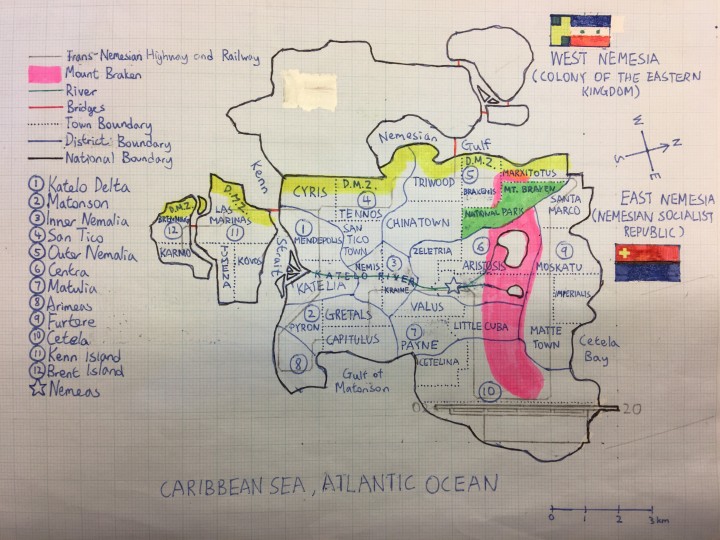 Trans-Nemesian Highway and Railway
Mount Braken
River
Bridges
Town Boundary
District Boundary
National Boundary
1 Katelo Delta
2 Matonson
3 Inner Nemalia
4 San Tico
5 Outer Nemalia
6 Centra
7 Matulia
8 Arimeas
9 Furtere
10 Cetela
11 Kenn Island
12 Brent Island
Nemeas
WEST NEMESIA
(COLONY OF THE EASTERN
KINGDOM)
W
S
N
E
EAST NEMESIA
(NEMESIAN SOCIALIST
REPUBLIC)
Nemesian Gulf
Kenn Strait
D.M.Z.
12
KARMO
D.M.Z.
LAS
MARINAS
11
KOVOS
CYRIS
D.M.Z.
4
TENNOS
TRIWOOD
D.M.Z.
5
BRAKENIS
MARXITOTUS
MT. BRAKEN
NATIONAL PARK
SANTA
MARCO
1
MENDEPOLIS
SAN
TICO
TOWN
CHINATOWN
ZELETRIA
3
NEMIS
KATELO RIVER
KATELIA
KRAINE
6
ARISTOSIS
9
MOSKATU
IMPERIALIS
2
GRETALS
PYRON
CAPITULUS
VALUS
7
PAYNE
LITTLE CUBA
MATTE
TOWN
CETELINA
8
10
Gulf of
Matonson
Cetela
Bay
20
CARIBBEAN SEA, ATLANTIC OCEAN
0 1 2 3km